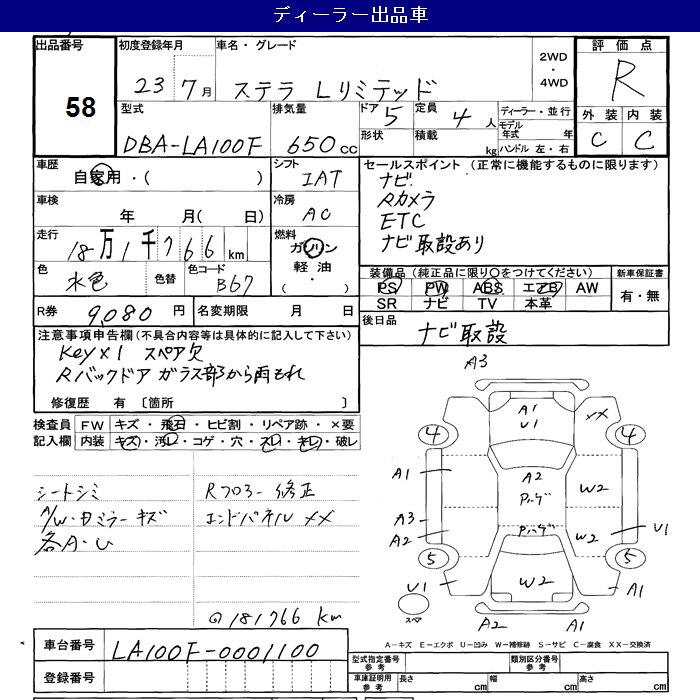 ディーラー出品車
出品番号
58
初度登録年月
23年 7月
車名・グレード
ステラ Lリミテッド
2WD
・
4WD
評価点
R
外装 内装
C C
型式
DBA-LA100F
排気量
650cc
ドア 5
形状
定員 4人
積載 kg
ディーラー・並行
モデル年式 年
ハンドル 左・右
車歴
自家用・( )
シフト
IAT
セールスポイント (正常に機能するものに限ります)
ナビ
Rカメラ
ETC
ナビ取設あり
車検
年 月( 日)
冷房
AC
走行
18万1千766km
燃料
ガソリン
軽油・
( )
色
水色
色替
色コード
B67
装備品(純正品に限り○をつけてください)
PS PW ABS エアB AW
SR ナビ TV 本革
新車保証書
有・無
R券 9,080円
名変期限 月 日
後日品
ナビ取設
注意事項申告欄(不具合内容等は具体的に記入して下さい)
Key×1 スペア欠
Rバックドア ガラス部から雨もれ
修復歴 有〔箇所 〕
検査員記入欄
FW キズ・飛石・ヒビ割・リペア跡・×要
内装 キズ・汚レ・コゲ・穴・スレ・キレ・破レ
シートシミ
A/W・ドミラーキズ
各A・U
Rフロアー修正
エンドパネル XX
◎181766 km
A3
A1
U1
XX
4
4
A1
A2
W2
A3
A2
W2
U1
5
5
U1
W2
A1
スペア
A2
A1
A-キズ E-エクボ U-凹み W-補修跡 S-サビ C-腐食 XX-交換済
車台番号
LA100F-0001100
登録番号
型式指定番号
参考
類別区分番号
参考
車庫証明用
参考
長さ cm
幅 cm
高さ cm